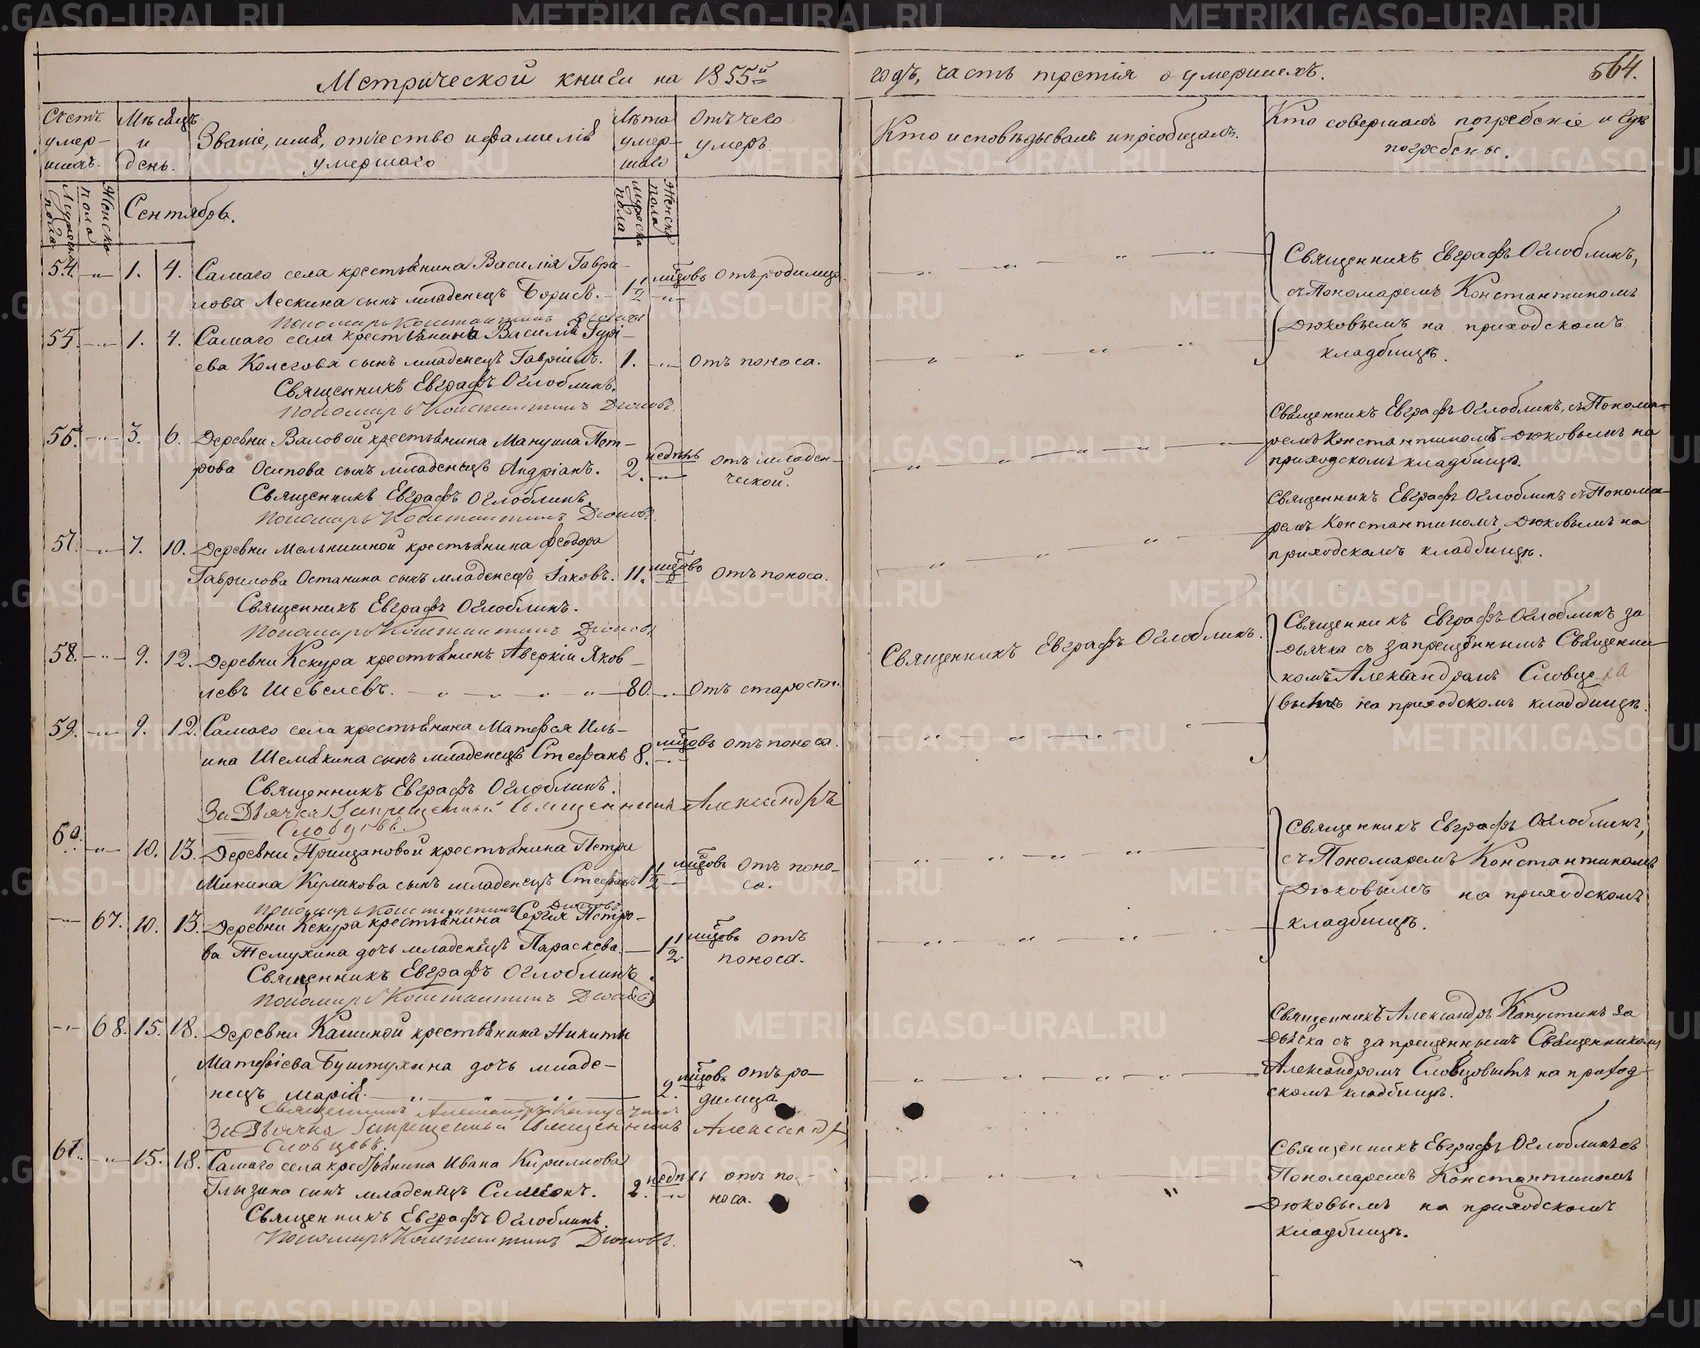 Метрической книги на 1855й
годъ, часть третія о умершихъ.
564.
Счетъ умер-шихъ.
Мѣсяцъ и день.
Званіе, имя, отчество и фамилія умершаго
Лѣта умер-шаго
Отъ чего умеръ.
Кто исповѣдывалъ и пріобщалъ.
Кто совершалъ погребеніе и гдѣ погребены.
Мужеска пола
Женска пола
Сентябрь.
Мужеска пола
Женска пола
54. —„— 1. 4. Самаго села крестьянина Василія Гаври-
лова Лескина сынъ младенецъ Борисъ. — 1½ мѣсяцовъ Отъ родимца.
Пономарь Константинъ Дюковъ
55. —„— 1. 4. Самаго села крестьянина Василія Гурі-
ева Колегова сынъ младенецъ Гавріилъ. 1. —„— Отъ поноса.
Священникъ Евграфъ Оглоблинъ.
Пономарь Константинъ Дюковъ.
Священникъ Евграфъ Оглоблинъ,
съ Пономаремъ Константиномъ
Дюковымъ на приходскомъ
кладбищѣ.
56. —„— 3. 6. Деревни Валовой крестьянина Мануила Пет-
рова Осипова сынъ младенецъ Андріанъ. 2. недѣль Отъ младен-
ческой.
Священникъ Евграфъ Оглоблинъ.
Пономарь Константинъ Дюковъ
Священникъ Евграфъ Оглоблинъ, съ Понома-
ремъ Константиномъ Дюковымъ на
приходскомъ кладбищѣ.
57. —„— 7. 10. Деревни Мельнишной крестьянина Феодора
Гаврилова Останина сынъ младенецъ Іаковъ. 11. мѣсяцовъ Отъ поноса.
Священникъ Евграфъ Оглоблинъ.
Пономарь Константинъ Дюковъ
Священникъ Евграфъ Оглоблинъ съ Понома-
ремъ Константиномъ Дюковымъ на
приходскомъ кладбищѣ.
58. —„— 9. 12. Деревни Кекура крестьянинъ Аверкій Яков-
левъ Шевелевъ. — „ — „ — „ — 80. —„— Отъ старости.
Священникъ Евграфъ Оглоблинъ.
59. —„— 9. 12. Самаго села крестьянина Матфея Иль-
ина Шемякина сынъ младенецъ Стефанъ 8. мѣсяцовъ Отъ поноса.
Священникъ Евграфъ Оглоблинъ.
За Дьячка Запрещенный Священникъ Александръ
Словцовъ.
Священникъ Евграфъ Оглоблинъ за
дьячка съ запрещеннымъ Священни-
комъ Александромъ Словцо-
вымъ на приходскомъ кладбищѣ.
60. —„— 10. 13. Деревни Прищановой крестьянина Петра
Минина Куликова сынъ младенецъ Стефанъ 1½ мѣсяцовъ Отъ поно-
са.
Пономарь Константинъ Дюковъ
—„— 67. 10. 13. Деревни Кекура крестьянина Сергія Петро-
ва Темухина дочь младенецъ Параскева. — 1½ мѣсяцовъ Отъ
поноса.
Священникъ Евграфъ Оглоблинъ.
Пономарь Константинъ Дюковъ
Священникъ Евграфъ Оглоблинъ,
съ Пономаремъ Константиномъ
Дюковымъ на приходскомъ
кладбищѣ.
—„— 68. 15. 18. Деревни Кашиной крестьянина Никиты
Матфіева Буштухина дочь младе-
нецъ Марія. — „ — „ — „ — 2. мѣсяцовъ Отъ ро-
димца.
Священникъ Александръ Капустинъ
За Дьячка Запрещенный Священникъ Александръ
Словцовъ.
Священникъ Александръ Капустинъ за
дьячка съ запрещеннымъ Священникомъ
Александромъ Словцовымъ на приход-
скомъ кладбищѣ.
61. —„— 15. 18. Самаго села крестьянина Ивана Кириллова
Глызина сынъ младенецъ Симеонъ. 2. недѣли отъ по-
носа.
Священникъ Евграфъ Оглоблинъ.
Пономарь Константинъ Дюковъ.
Священникъ Евграфъ Оглоблинъ съ
Пономаремъ Константиномъ
Дюковымъ на приходскомъ
кладбищѣ.
METRIKI.GASO-URAL.RU